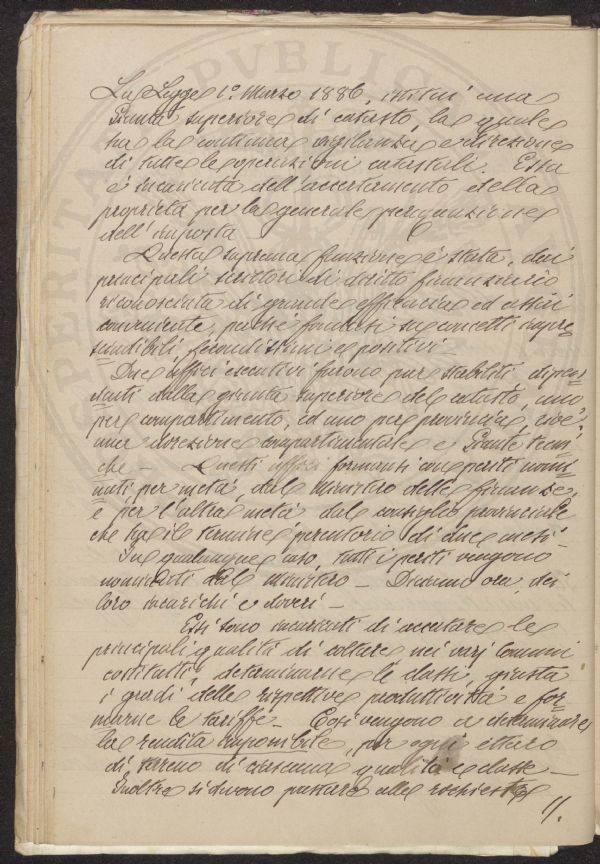 La Legge 1° Marzo 1886, istituì una
Giunta superiore di catasto, la quale
ha la continua vigilanza, e direzione
di tutte le operazioni catastali. Essa
è incaricata dell'accertamento della
proprietà per la generale perequazione
dell'imposta
Questa suprema funzione è stata, dai
principali scrittori di diritto finanziario
riconosciuta di grande efficacia ed assai
conveniente, perchè fondasi su concetti impre
scindibili, fecondissimi e positivi -
Due uffici esecutivi furono pur stabiliti dipen
denti dalla giunta superiore del catasto, uno
per compartimento, ed uno per provincia, cioè:
una direzione compartimentale e Giunte tecni
che - Questi uffici formansi con periti nomi
nati per metà, dal ministro delle finanze,
e per l'altra metà dal consiglio provinciale
che ha il termine perentorio di due mesi -
In qualunque caso, tutti i periti vengono
nominati dal ministero - Diciamo ora, dei
loro incarichi e doveri -
Essi sono incaricati di accertare le
principali qualità di colture nei varj Comuni
costituiti, determinarne le classi, giusta
i gradi delle rispettive produttività e for
marne le tariffe - Così vengono a determinare
la rendita imponibile, per ogni ettaro
di terreno di ciascuna qualità e classe -
Inoltre si devono prestare alle richieste